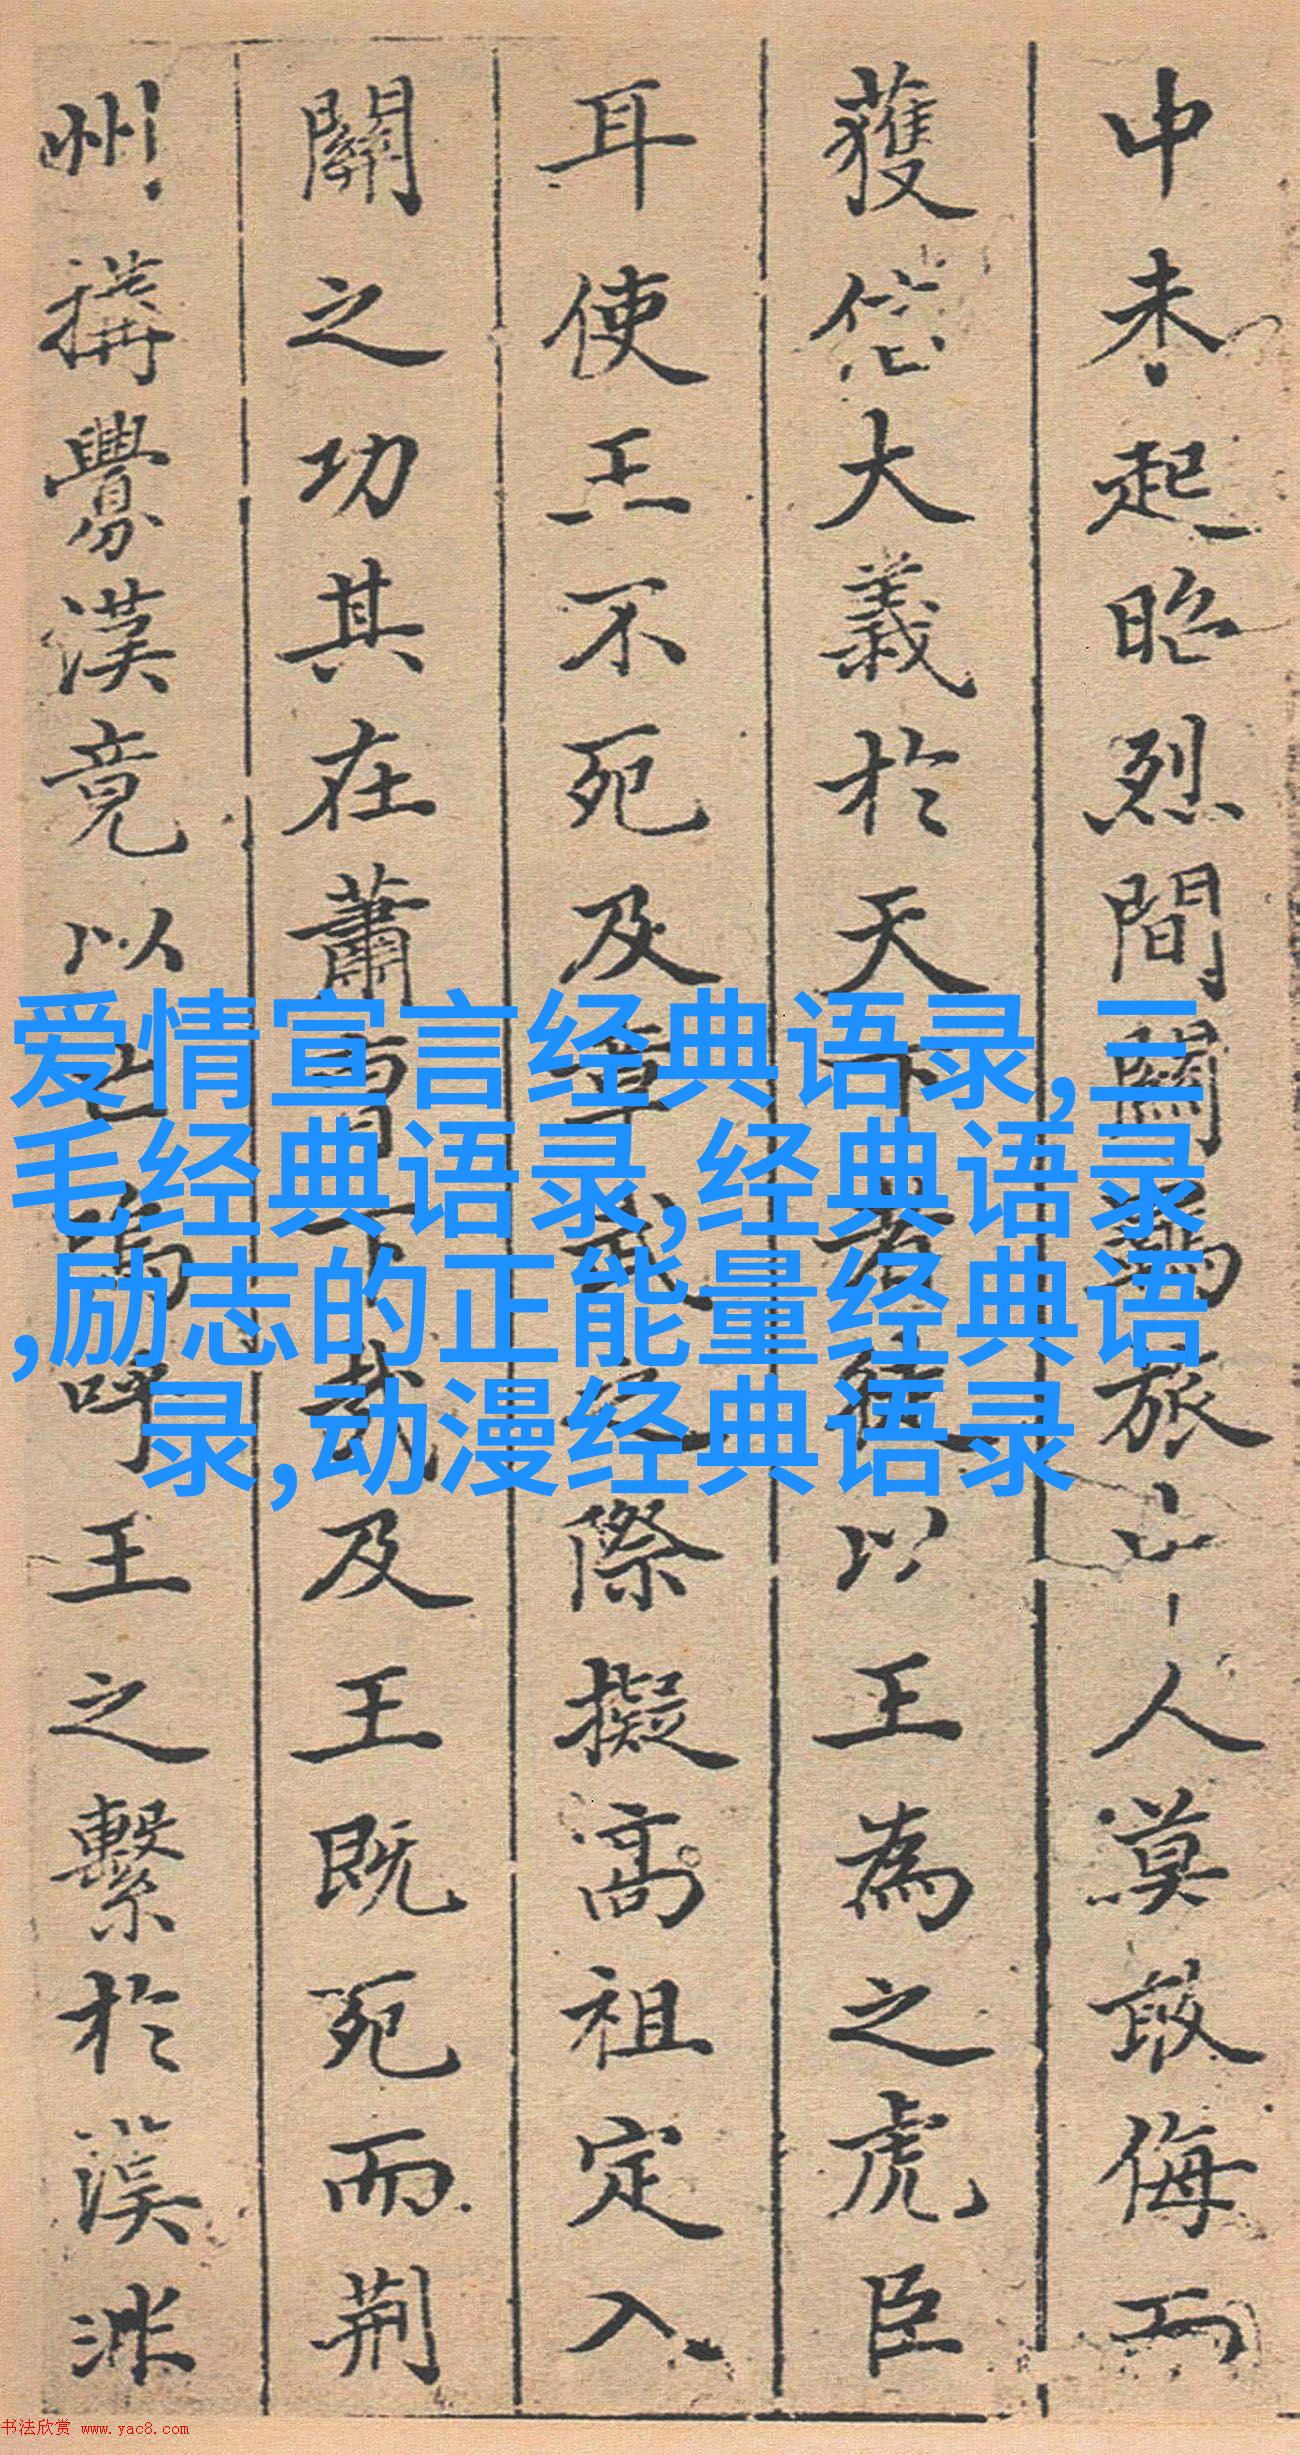 中未起昭烈間關羈旅人莫敢侮而
獲信大義於天下者徒以王為之虎臣
耳使王不死及章武之際擬高祖定入
關之功其在蕭曹下哉及王既死而荊
州搆釁漢竟以亡嗚呼王之繫於漢非
爱情宣言经典语录,三
毛经典语录,经典语录
,励志的正能量经典语
录,动漫经典语录
书法欣赏 www.yac8.com